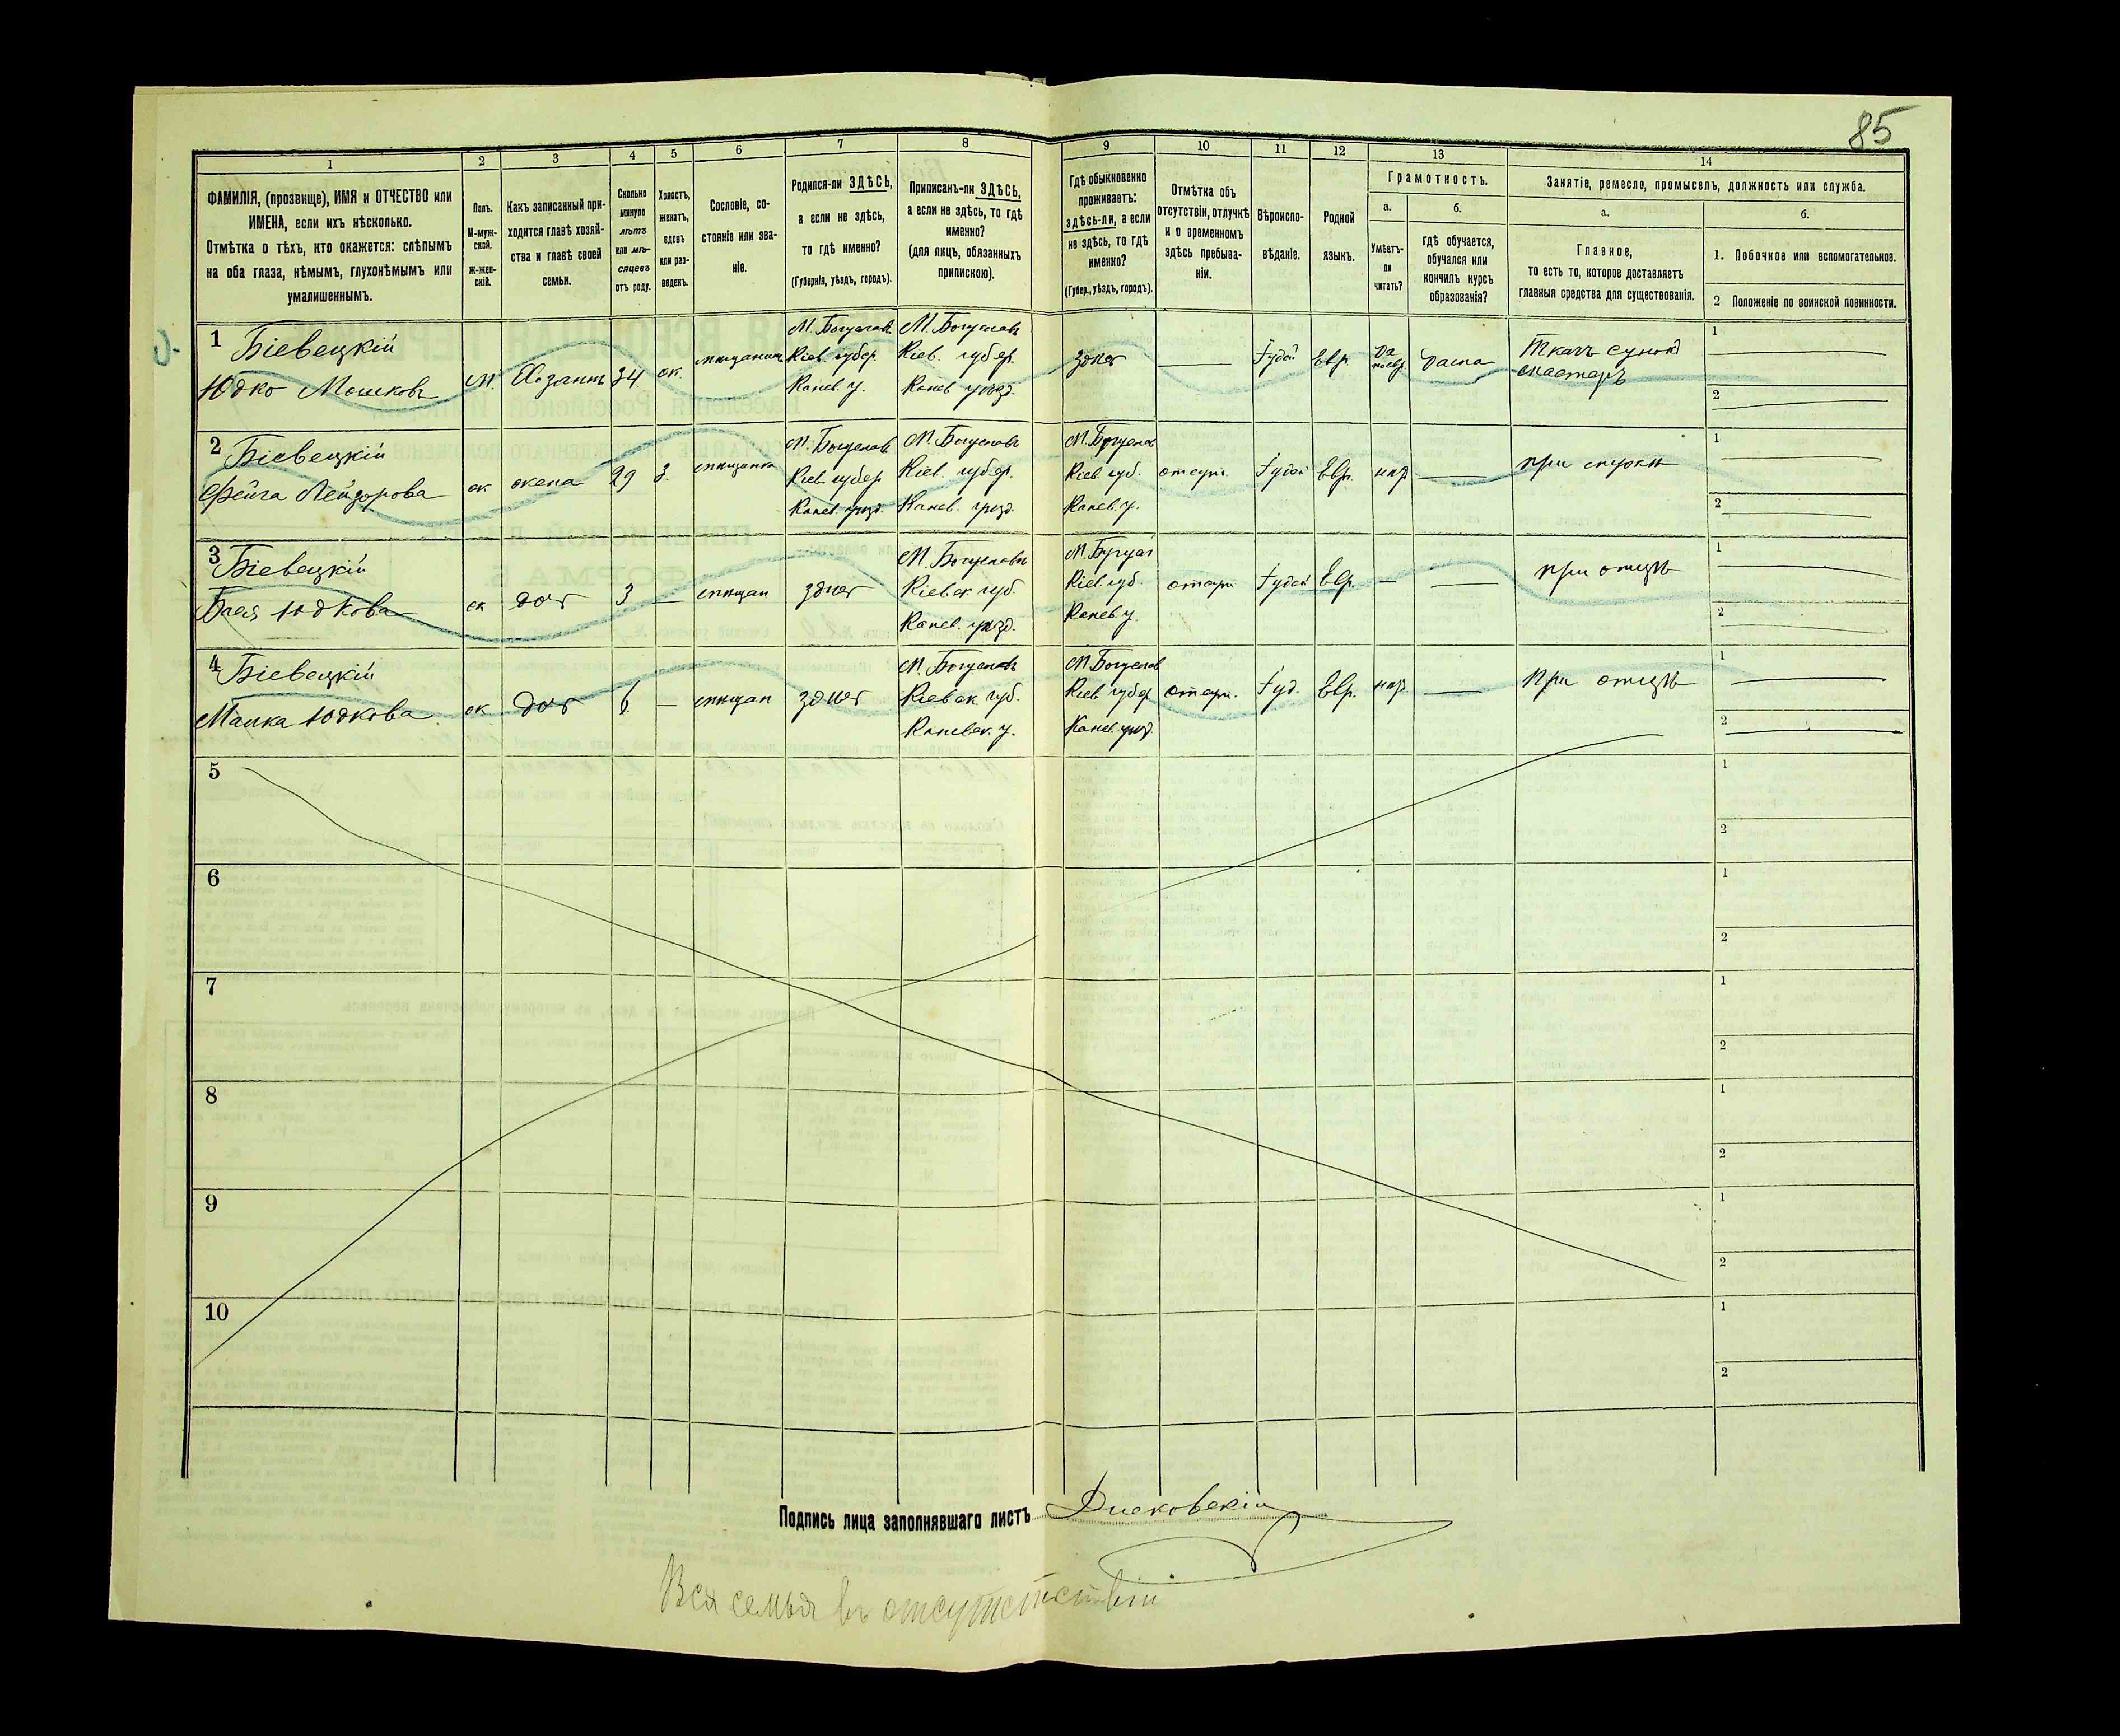 85
1
2
3
4
5
6
7
8
9
10
11
12
13
14
ФАМИЛІЯ, (прозвище), ИМЯ и ОТЧЕСТВО или
ИМЕНА, если ихъ нѣсколько.
Отмѣтка о тѣхъ, кто окажется: слѣпымъ
на оба глаза, нѣмымъ, глухонѣмымъ или
умалишеннымъ.
Полъ.
М-муж-
ской.
Ж-жен-
скій.
Какъ записанный при-
ходится главѣ хозяй-
ства и главѣ своей
семьи.
Сколько
минуло
лѣтъ
или мѣ-
сяцевъ
отъ роду.
Холостъ,
женатъ,
вдовъ
или раз-
веденъ.
Сословіе, со-
стояніе или зва-
ніе.
Родился-ли ЗДѢСЬ,
а если не здѣсь,
то гдѣ именно?
(Губернія, уѣздъ, городъ).
Приписанъ-ли ЗДѢСЬ,
а если не здѣсь, то гдѣ
именно?
(для лицъ, обязанныхъ
припискою).
Гдѣ обыкновенно
проживаетъ:
здѣсь-ли, а если
не здѣсь, то гдѣ
именно?
(Губер., уѣздъ, городъ).
Отмѣтка объ
отсутствіи, отлучкѣ
и о временномъ
здѣсь пребыва-
ніи.
Вѣроиспо-
вѣданіе.
Родной
языкъ.
Грамотность.
а.
Умѣетъ-
ли
читать?
б.
гдѣ обучается,
обучался или
кончилъ курсъ
образованія?
Занятіе, ремесло, промыселъ, должность или служба.
а.
Главное,
то есть то, которое доставляетъ
главныя средства для существованія.
б.
1. Побочное или вспомогательное.
2 Положеніе по воинской повинности.
1 Біевецкій
Юдко Мошковъ
М.
Хозяинъ
34
ж.
мѣщанинъ
М. Богуславъ
Кіев. губер.
Канев. у.
М. Богуславъ
Кіев. губер.
Канев уѣзд.
здѣсь
Іудей
Евр.
да
Ткачъ сукон
1
2
2 Біевецкій
Фейга Лейзорова
ж
жена
29
З.
мѣщанка
М. Богуслав
Кіев. губер
Канев. уѣзд.
М. Богуславъ
Кіев. губер.
Канев. уѣзд.
М. Богуслав
Кіев. губ.
Канев. у.
отсут.
Іудей
Евр.
при мужѣ
1
2
3 Біевецкій
Бася Юдкова
ж
доч
3
мѣщан
здѣсь
М. Богуславъ
Кіевск губ.
Канев. уѣзд.
Кіев. губ.
Канев. у.
отсут
Іудей
Евр.
при отцѣ
1
2
4 Біевецкій
Малка Юдкова.
ж
доч
6
мѣщан
здѣсь
М. Богуславъ
Кіевск губ.
Каневск. у.
М. Богуслав
Кіев губер
Канев. уѣзд.
отсут.
Іуд.
Евр.
При отцѣ
1
2
5
1
2
6
1
2
7
1
2
8
1
2
9
1
2
10
1
2
Подпись лица заполнявшаго листъ
Вся семья въ отсутствіи